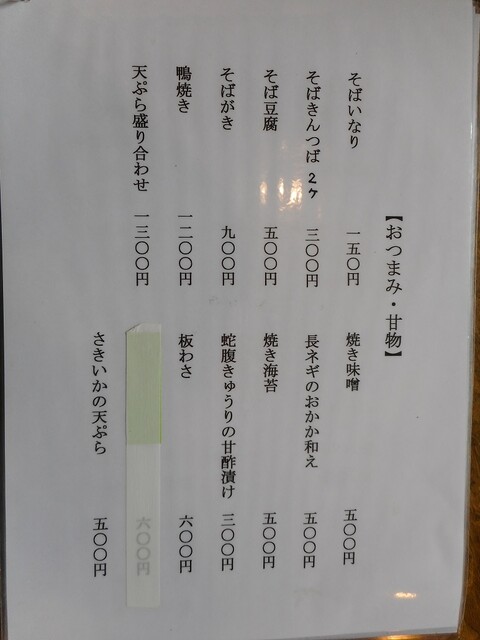 【おつまみ・甘物】
そばいなり 一五〇円
そばきんつば 2ケ 三〇〇円
そば豆腐 五〇〇円
そばがき 九〇〇円
鴨焼き 一二〇〇円
天ぷら盛り合わせ 一三〇〇円
焼き味噌 五〇〇円
長ネギのおかか和え 五〇〇円
焼き海苔 五〇〇円
蛇腹きゅうりの甘酢漬け 三〇〇円
板わさ 六〇〇円
六〇〇円
さきいかの天ぷら 五〇〇円